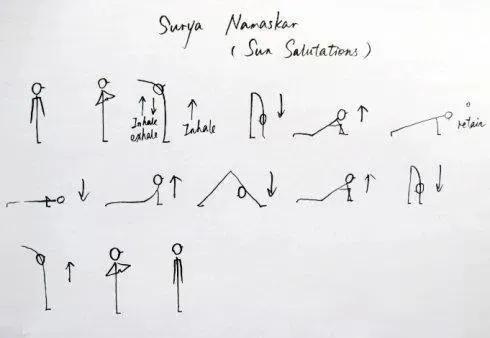 Surya Namaskar
(Sun Salutations)
Inhale
exhale
Inhale
retain